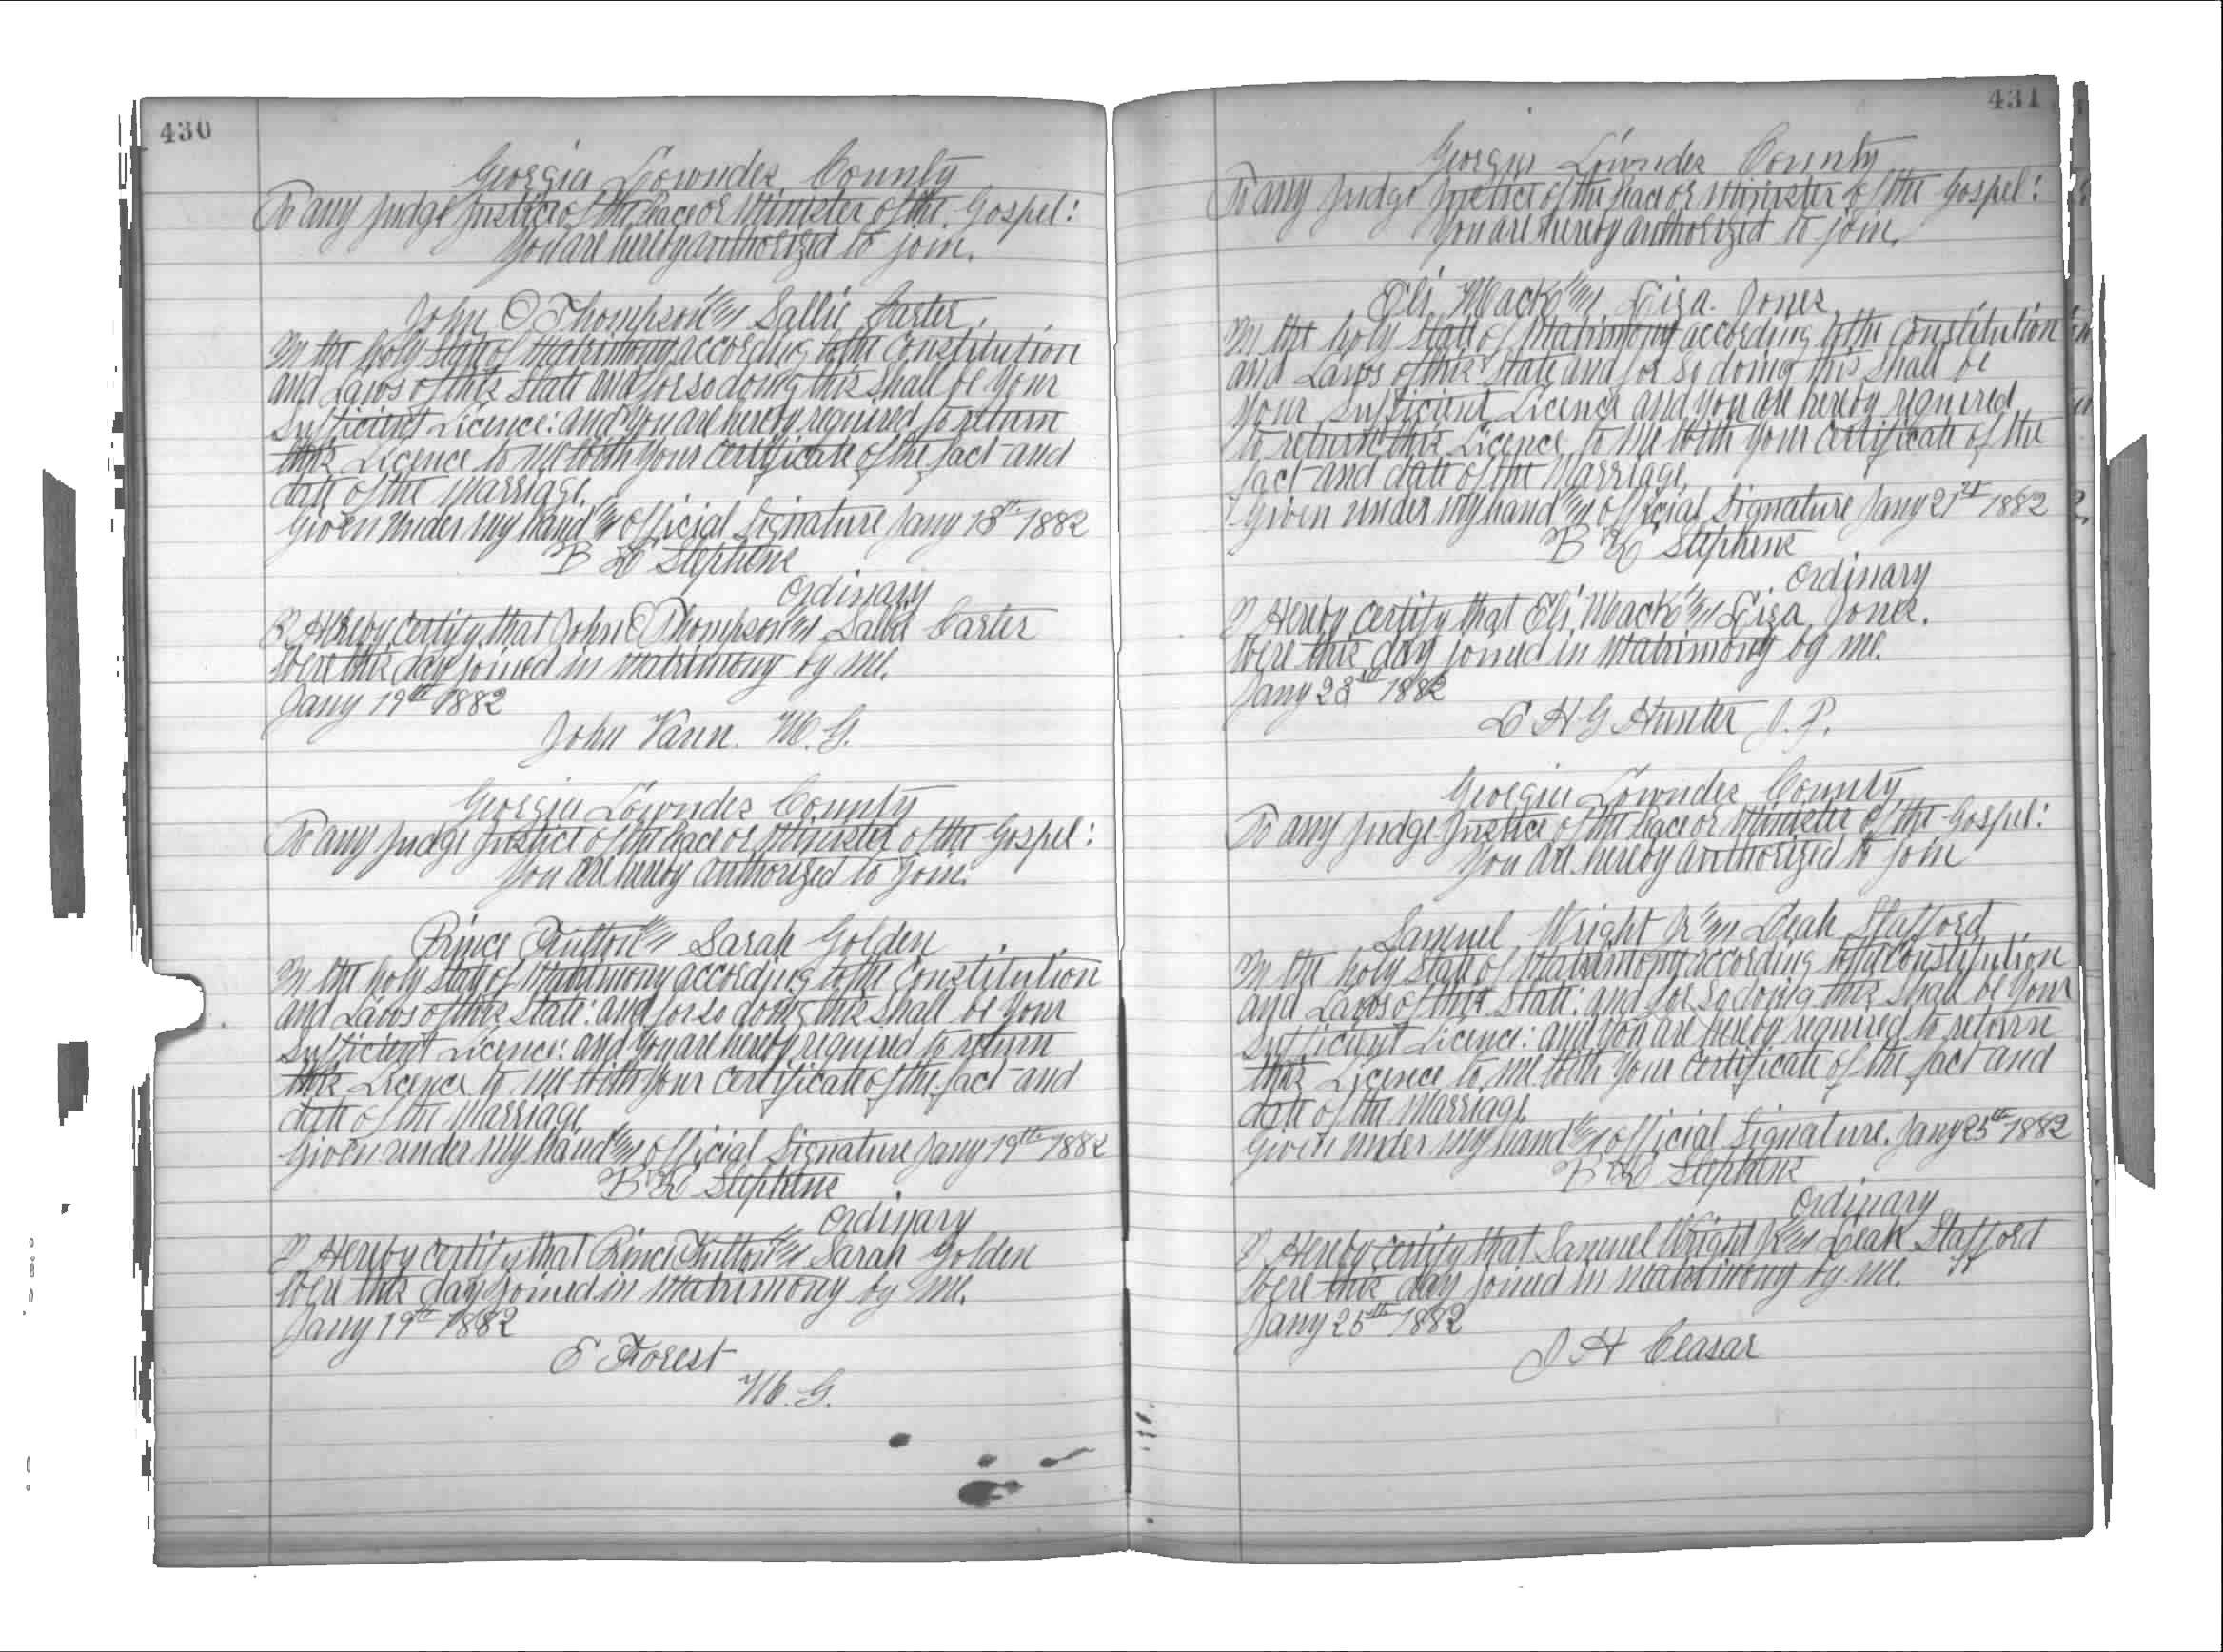 430
Georgia Lowndes County
To any Judge Justice of the Peace or Minister of the Gospel:
You are hereby authorized to join.
John C Thompson and Sallie Carter.
In the holy state of Matrimony according to the Constitution
and Laws of this State and for so doing this shall be your
Sufficient Licence: and you are hereby required to return
this Licence to me with your certificate of the fact and
date of the Marriage.
Given under my hand and official Signature Jany 18th 1882
Stephens
Ordinary
I Hereby certify that John C Thompson and Sallie Carter
Were this day joined in Matrimony by me.
Jany 19th 1882
John Vann. M. G.
Georgia Lowndes County
To any Judge Justice of the Peace or Minister of the Gospel:
You are hereby authorized to join.
Prince Fulton and Sarah Golden
In the holy state of Matrimony according to the Constitution
and Laws of this State: and for so doing this shall be your
Sufficient Licence: and you are hereby required to return
this Licence to me with your certificate of the fact and
date of the Marriage
Given under my hand and official Signature Jany 19th 1882
Stephens
Ordinary
I Hereby certify that Prince Fulton and Sarah Golden
Were this day joined in Matrimony by me.
Jany 19th 1882
E Forest
M. G.
431
Georgia Lowndes County
To any Judge Justice of the Peace or Minister of the Gospel:
You are hereby authorized to join.
Eli Mack and Liza. Jones
In the holy state of Matrimony according to the Constitution
and Laws of this State and for so doing this shall be
your Sufficient Licence and you are hereby required
to return this Licence to me with your certificate of the
fact and date of the Marriage.
Given under my hand and official Signature Jany 21st 1882
Stephens
Ordinary
I Hereby certify that Eli Mack and Liza Jones.
Were this day joined in Matrimony by me.
Jany 23rd 1882
H G Hunter J. P.
Georgia Lowndes County
To any Judge Justice of the Peace or Minister of the Gospel:
You are hereby authorized to join
Samuel Wright Jr and Leah Stafford
In the holy state of Matrimony according to the Constitution
and Laws of this State: and for so doing this shall be your
Sufficient Licence: and you are hereby required to return
this Licence to me with your certificate of the fact and
date of the Marriage
Given under my hand and official Signature. Jany 25th 1882
Stephens
Ordinary
I Hereby certify that Samuel Wright Jr and Leah Stafford
Were this day joined in Matrimony by me.
Jany 25th 1882
J H Ceasar